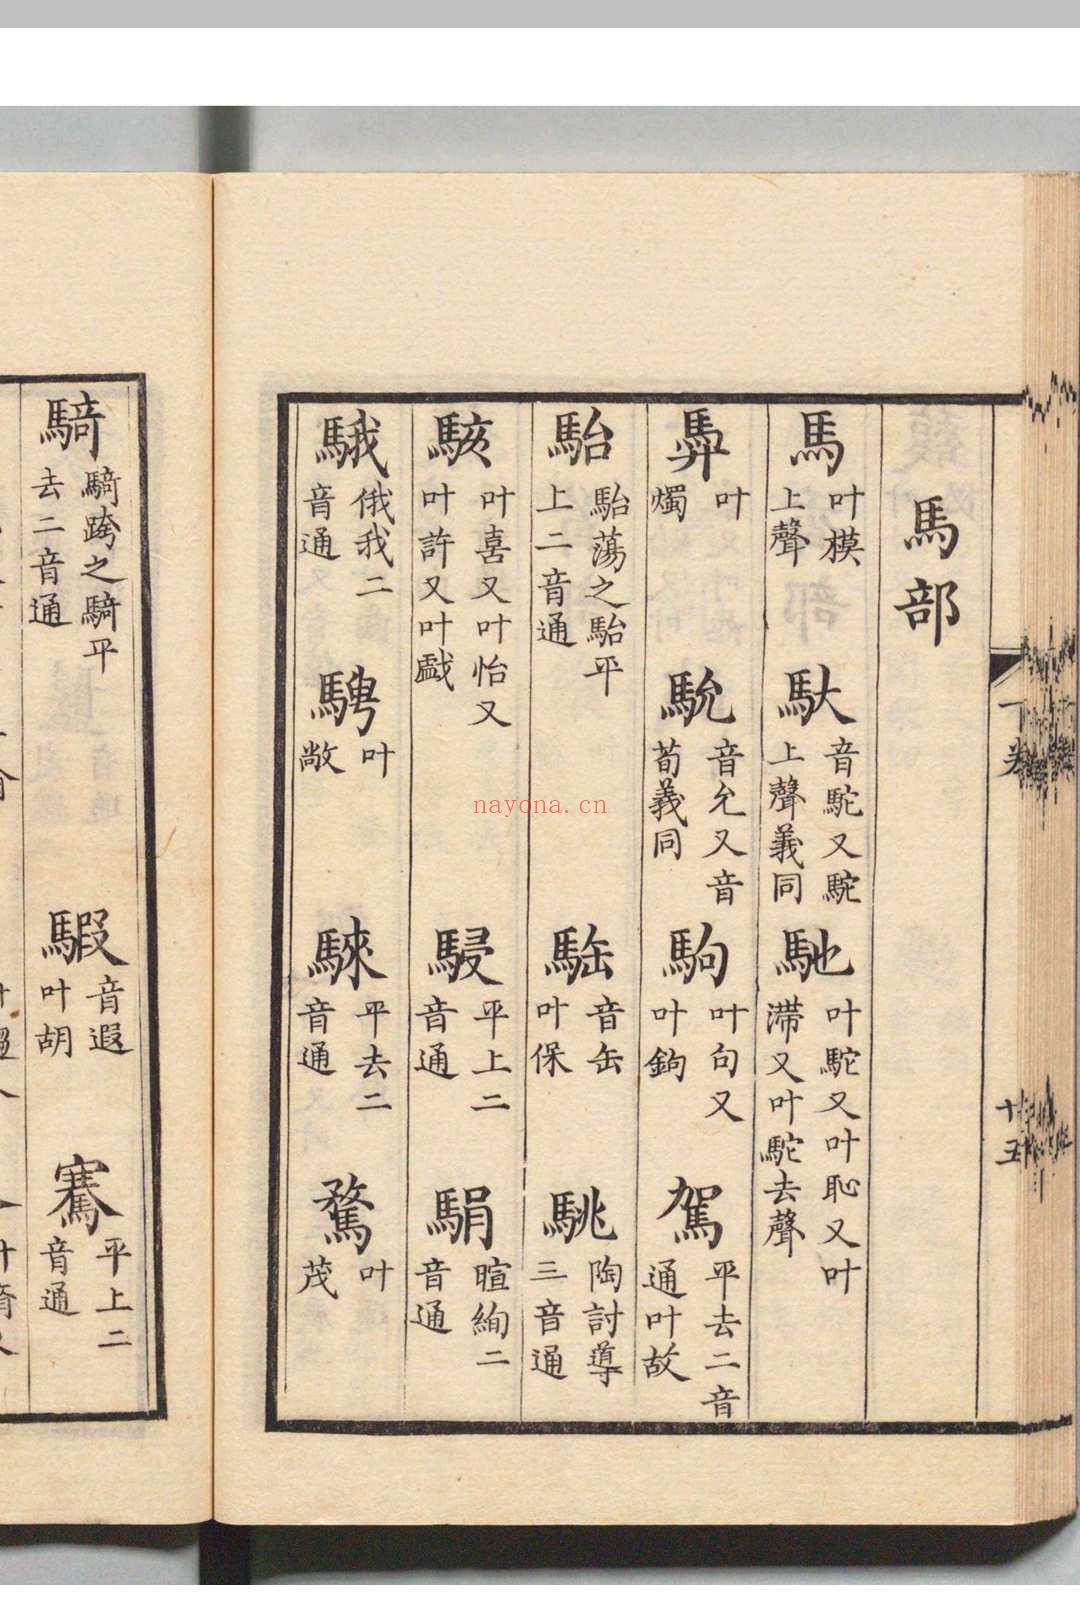 馬部
馬 叶模上聲 馱 音駝又駝上聲義同 馳 叶駝又叶恥又叶滯又叶駝去聲
馵 叶燭 馻 音允又音荀義同 駒 叶句又叶鉤 駕 平去二音通叶故
駘 駘蕩之駘平上二音通 音缶叶保 駣 陶討導三音通
駭 叶喜又叶怡又叶許又叶戲 駸 平上二音通 駽 暄絢二音通
騀 俄我二音通 騁 叶敞 騋 平去二音通 騖 叶茂
騎 騎跨之騎平去二音通 騢 音遐叶胡 騫 平上二音通
下卷
十五
nayona.cn